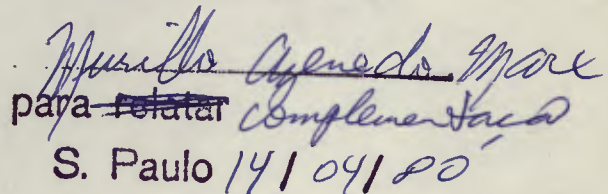 Murillo Azevedo Marx
para relatar complementação
S. Paulo 14/04/80